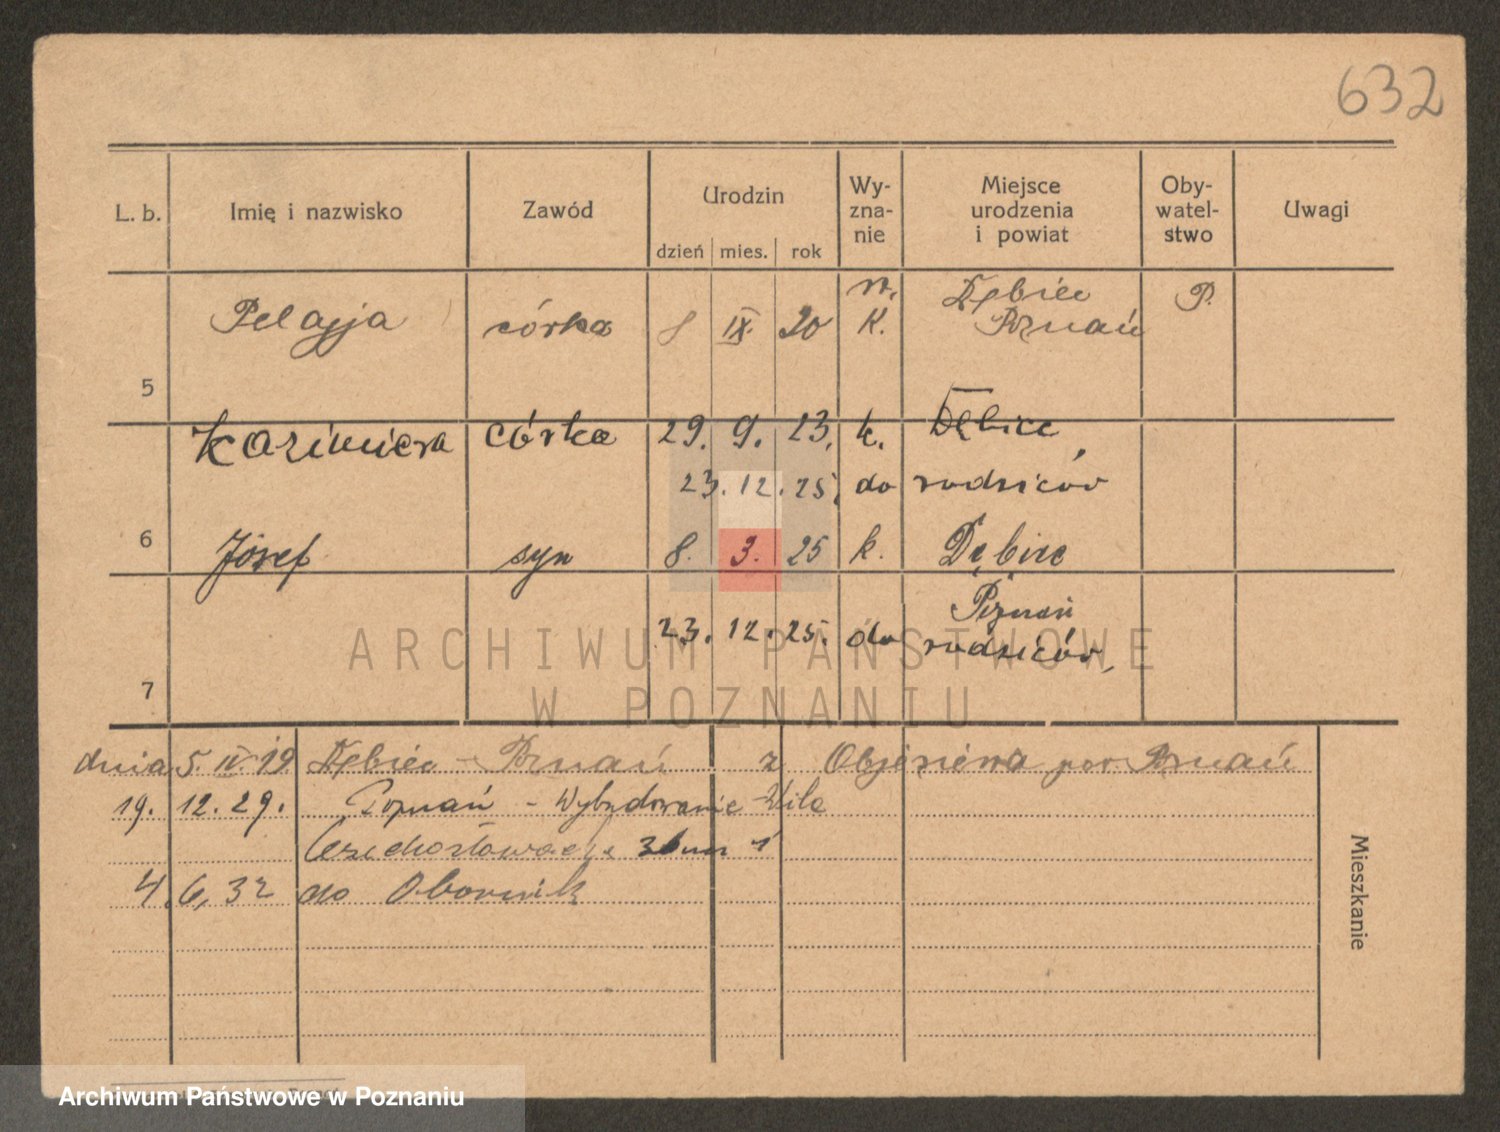 632
L. b. Imię i nazwisko Zawód Urodzin dzień mies. rok Wy-zna-nie Miejsce urodzenia i powiat Oby-watel-stwo Uwagi
r. Dębiec P.
Pelagja córka 8 IX. 20 K. Poznań
5
Kazimiera córka 29. 9. 23. k. Dębiec
23. 12. 25. do rodziców
6
Józef syn 8. 3. 25 k. Dębiec
Poznań
23. 12. 25. do rodziców,
ARCHIWUM PAŃSTWOWE
W POZNANIU
7
dnia 5. IV. 19. Dębiec - Poznań z pow. Poznań
19. 12. 29. Poznań - Wybudowanie
Czechosłowacja
4. 6. 32 do Obornik
Mieszkanie
Archiwum Państwowe w Poznaniu